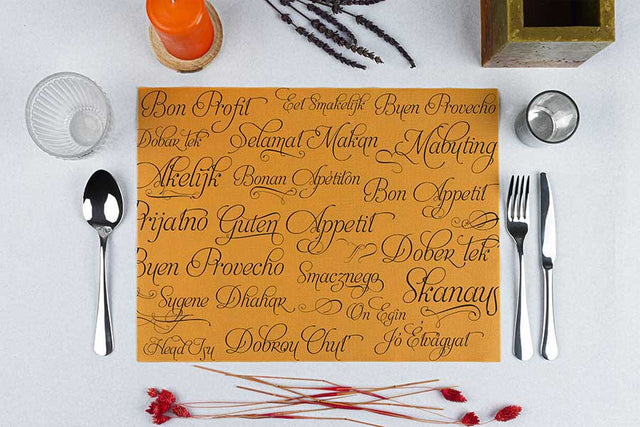 Bon Profit Eet Smakelijk Buen Provecho
Dobar tek Selamat Makan Mabuting
Akelijk Bonan Apetiton Bon Appetit
Prijatno Guten Appetit Dober tek
Buen Provecho Smacznego Skanaus
Sygene Dhahar On Egin
Hoqd Isy Dobrou Chut' Jó Étvágyat